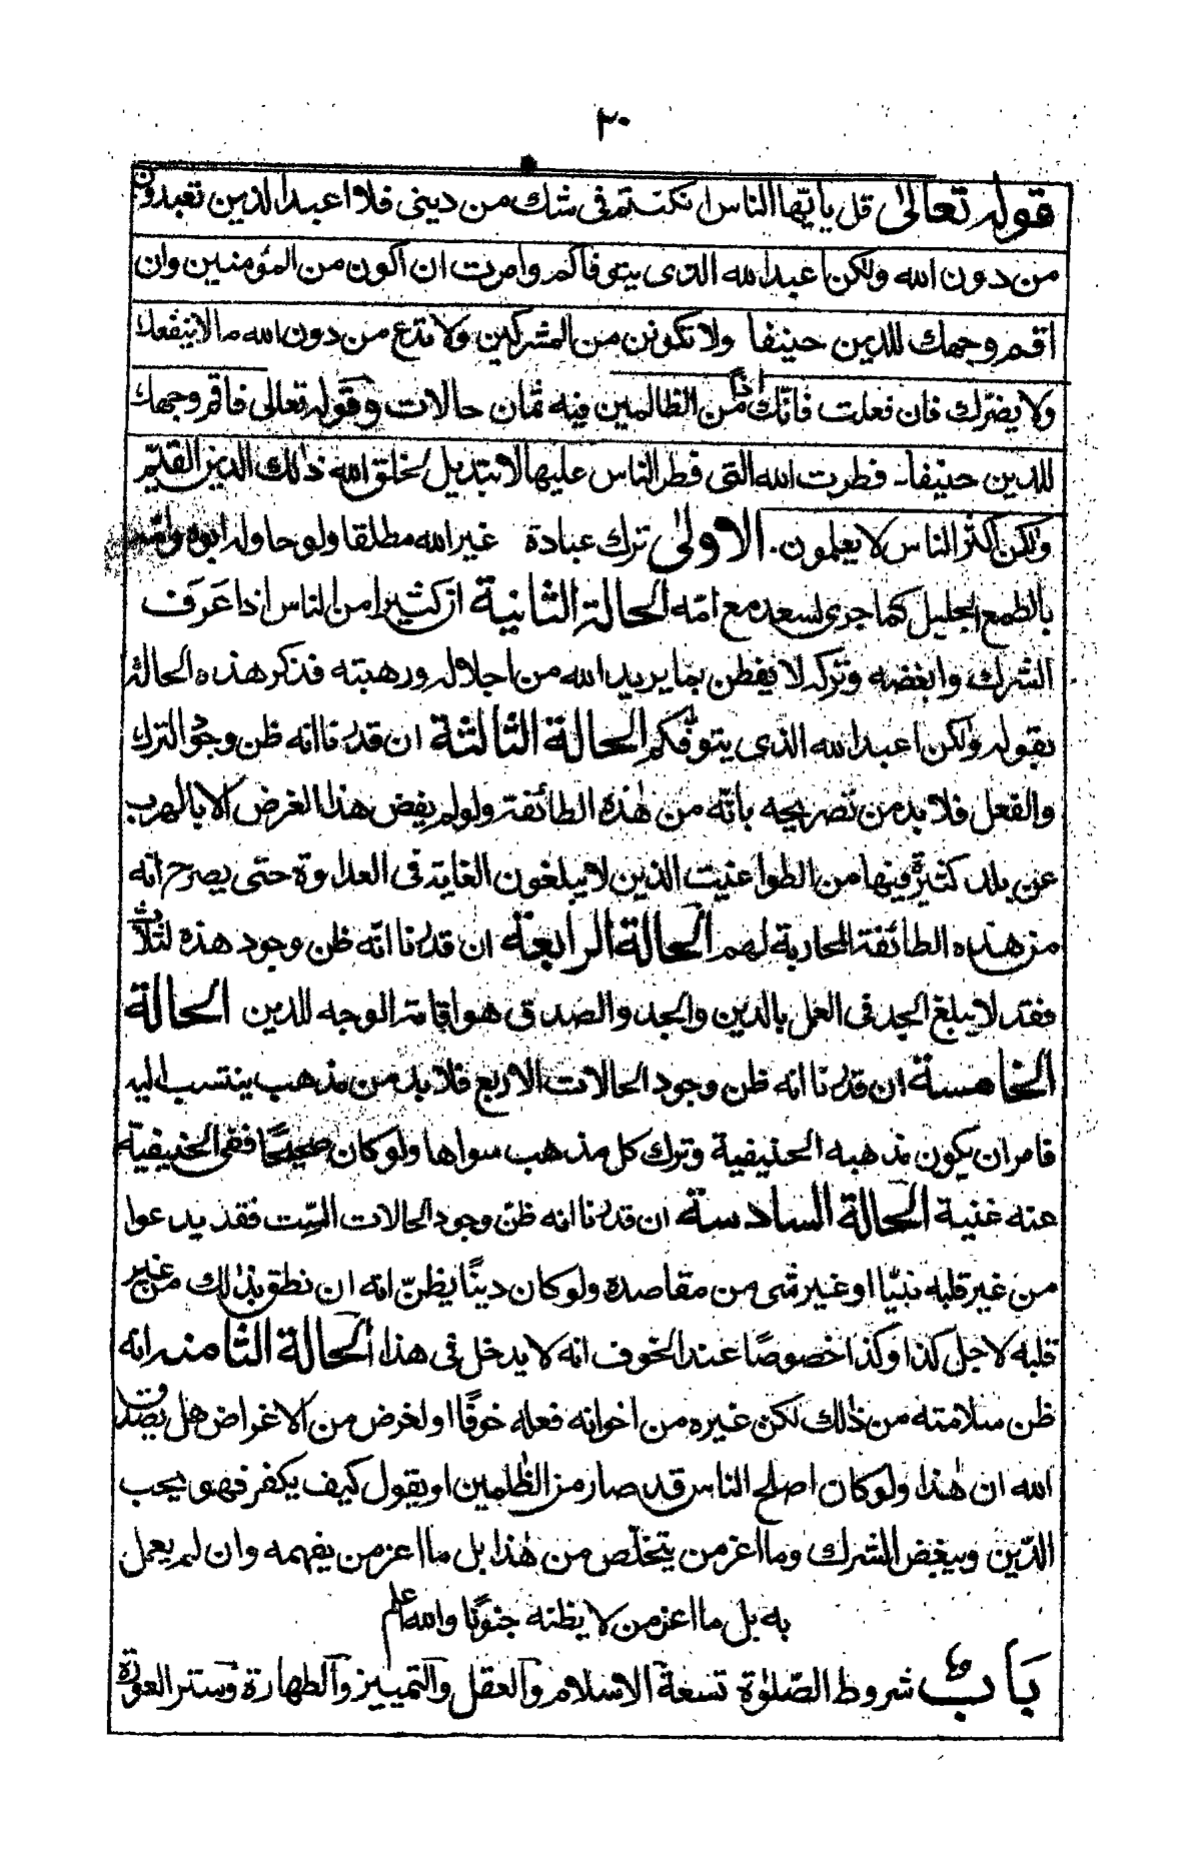 ٣٠
قوله تعالى قل يا يّها الناس ان كنتم فى شك من دينى فلا اعبد الذين تعبدون
من دون الله ولكن اعبد الله الذى يتوفاكم وامرت ان اكون من المؤمنين وان
اقم وجهك للدين حنيفا ولا تكونن من المشركين ولا تدع من دون الله مالا ينفعك
ولا يضرك فان فعلت فانّك اذا من الظالمين فيه ثمان حالات وقوله تعالى فاقم وجهك
للدين حنيفا۔ فطرت الله التى فطر الناس عليها لا تبديل لخلق الله ذلك الدين القيّم
ولكن اكثر الناس لا يعلمون. الاولىٰ ترك عبادة غير الله مطلقا ولو حاوله ابوه وامّه
بالطمع الجليل كما جرى لسعد مع امّه الحالة الثانية ان كثيرا من الناس اذا عَرَف
الشرك وابغضه وتركه لا يفطن بما يريد الله من اجلاله ورهبته فذكر هذه الحالة
بقوله ولكن اعبد الله الذى يتوفّكم الحالة الثالثة ان قدرنا انه ظن وجود الترك
والفعل فلا بد من تصريحه بانّه من هٰذه الطائفة ولو لم يفض هذا الغرض الا بالهرب
عن بلد كثيرٌ فيها من الطواغيت الذين لا يبلغون الغاية فى العداوة حتى يصرح انه
من هذه الطائفة المحاربة لهم الحالة الرابعة ان قدرنا انّه ظن وجود هذه الثلاث
فقد لا يبلغ الجد فى العمل بالدين والجد والصدق هو اقامة الوجه للدين الحالة
الخامسة ان قدرنا انه ظن وجود الحالات الاربع فلا بد من مذهب ينتسب اليه
فامر ان يكون مذهبه الحنيفية وترك كل مذهب سواها ولو كان صحيحًا ففى الحنيفيّة
عنه غنية الحالة السادسة ان قدرنا انه ظنّ وجود الحالات السِّت فقد يدعوا
من غير قلبه نبيّا او غير شى من مقاصده ولو كان دينًا يظنّ انه ان نطق بذٰلك من غير
قلبه لاجل كذا وكذا خصوصًا عند الخوف انه لا يدخل فى هذا الحالة الثامنه انه
ظن سلامته من ذٰلك لكن غيره من اخوانه فعله خوفًا او لغرض من الاغراض هل يصدق
الله ان هٰذا ولو كان اصلح الناس قد صار من الظٰلمين او يقول كيف يكفر فهو يحب
الدّين ويبغض الشرك وما اعز من يتخلّص من هٰذا بل ما اعز من يفهمه وان لم يعمل
به بل ما اعز من لا يظنه جنونًا والله اعلم
باب شروط الصّلوٰة تسعة الاسلام والعقل والتمييز والطهارة وستر العورة